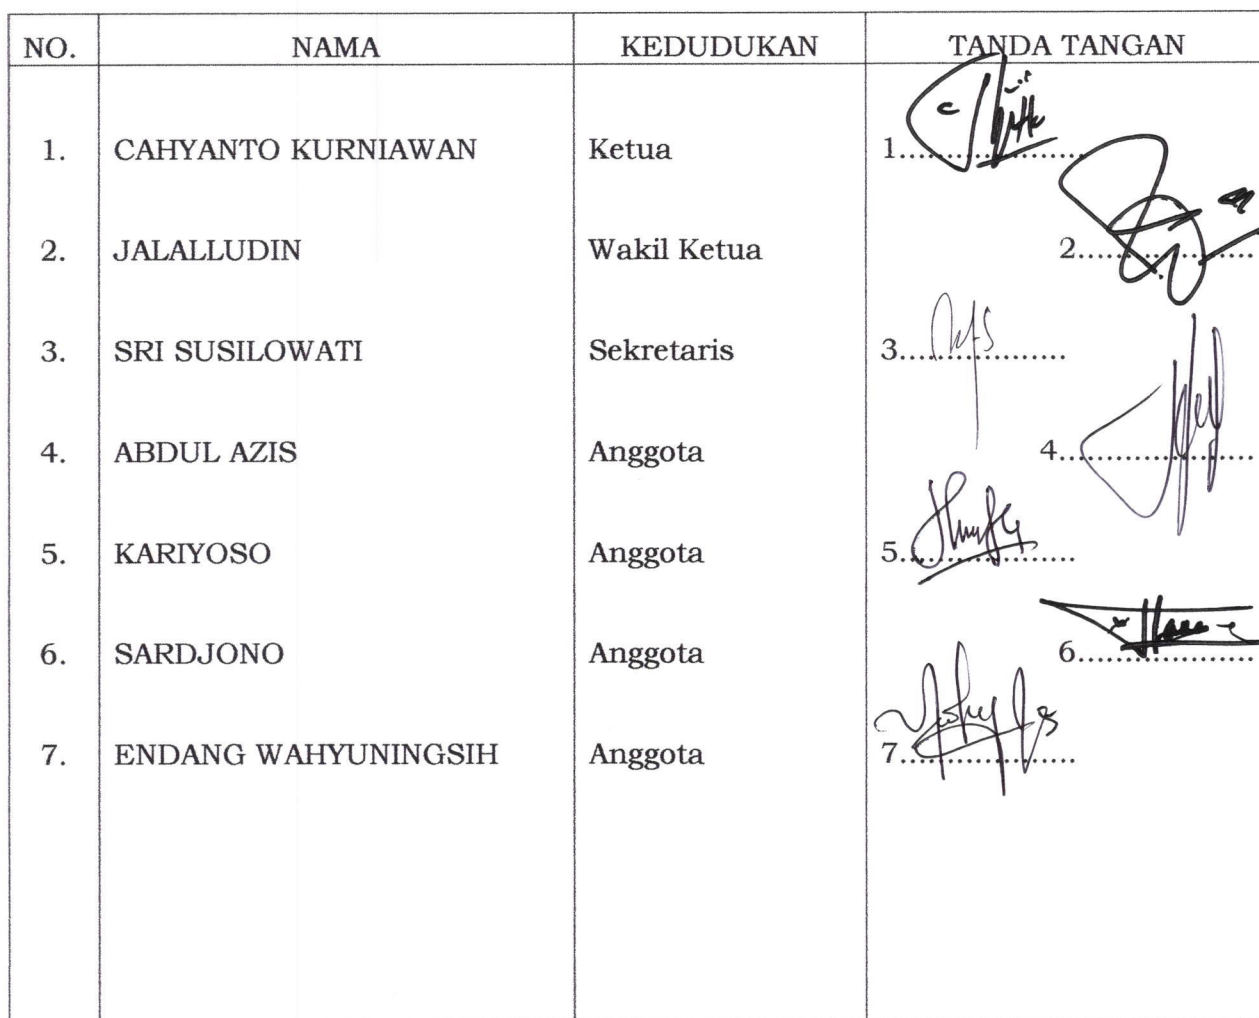 NO. NAMA KEDUDUKAN TANDA TANGAN
1. CAHYANTO KURNIAWAN Ketua 1..................
2. JALALLUDIN Wakil Ketua 2..................
3. SRI SUSILOWATI Sekretaris 3..................
4. ABDUL AZIS Anggota 4..................
5. KARIYOSO Anggota 5..................
6. SARDJONO Anggota 6..................
7. ENDANG WAHYUNINGSIH Anggota 7..................